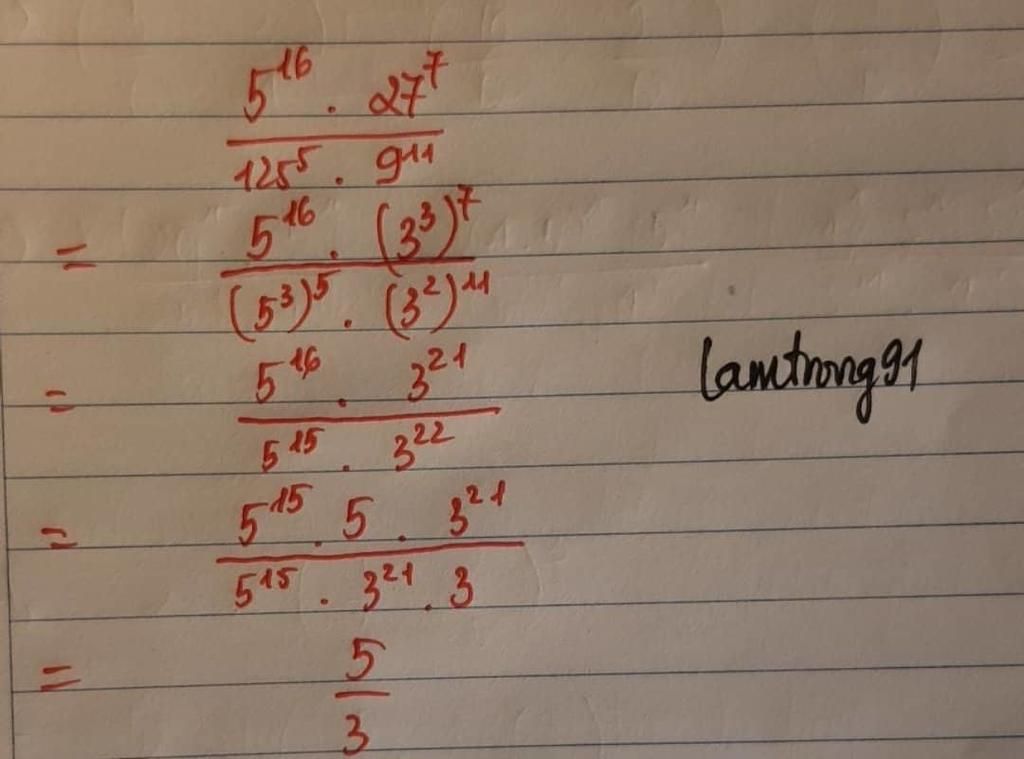 5^16 . 27^7
125^5 . 9^11
= 5^16 . (3^3)^7
(5^3)^5 . (3^2)^11
= 5^16 . 3^21
5^15 . 3^22
= 5^15 . 5 . 3^21
5^15 . 3^21 . 3
= 5
3
lamtrong91